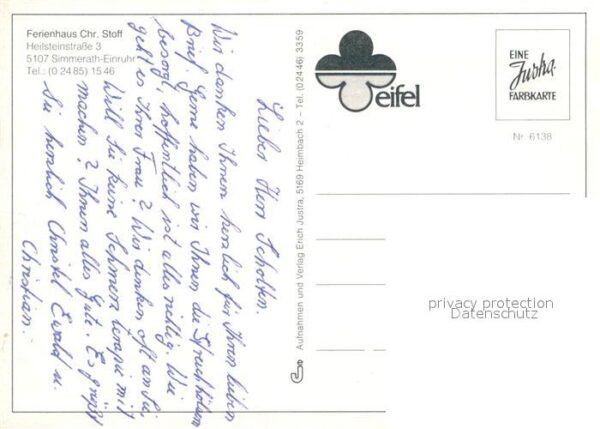 Ferienhaus Chr. Stoff
Heilsteinstraße 3
5107 Simmerath-Einruhr
Tel.: (0 24 85) 15 46
Lieber Herr Scholten.
Wir danken Ihnen herzlich für Ihren lieben
Brief. Gerne haben wir Ihnen die
besorgt, hoffentlich ist alles richtig. Wie
geht es Ihrer Frau? Wir denken oft an Sie.
Will Sie keine Schmerztherapie mit
machen? Ihnen alles Gute. Es grüßt
Sie herzlich Christel Ewald u.
Christian.
Aufnahmen und Verlag Erich Justra, 5169 Heimbach 2 – Tel. (0 24 46) 33 59
eifel
EINE
Justra
FARBKARTE
Nr. 6138
privacy protection
Datenschutz